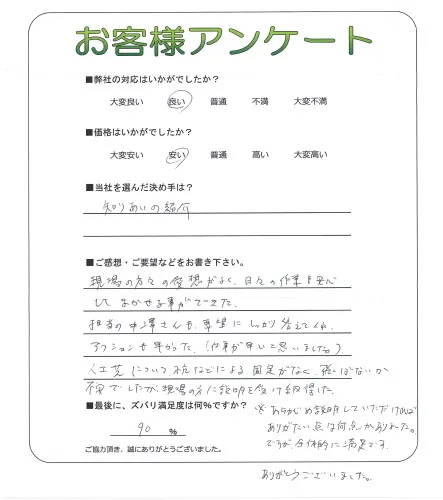 お客様アンケート
■弊社の対応はいかがでしたか？
大変良い 良い 普通 不満 大変不満
■価格はいかがでしたか？
大変安い 安い 普通 高い 大変高い
■当社を選んだ決め手は？
知りあいの紹介
■ご感想・ご要望などをお書き下さい。
現場の方々の愛想がよく、日々の作業も安心
して まかせる事ができた。
担当の中澤さんも、要望に しっかり答えてくれ、
アクションも早かった。（仕事が早いと思いました）。
人工芝について、杭などによる 固定がなく、飛ばないか
不安でしたが、現場の方に説明を受け納得した。
■最後に、ズバリ満足度は何％ですか？
90 ％
※ あらかじめ説明していただければ
ありがたい点は何点かありました。
ですが、全体的に満足です。
ご協力頂き、誠にありがとうございました。
ありがとうございました。